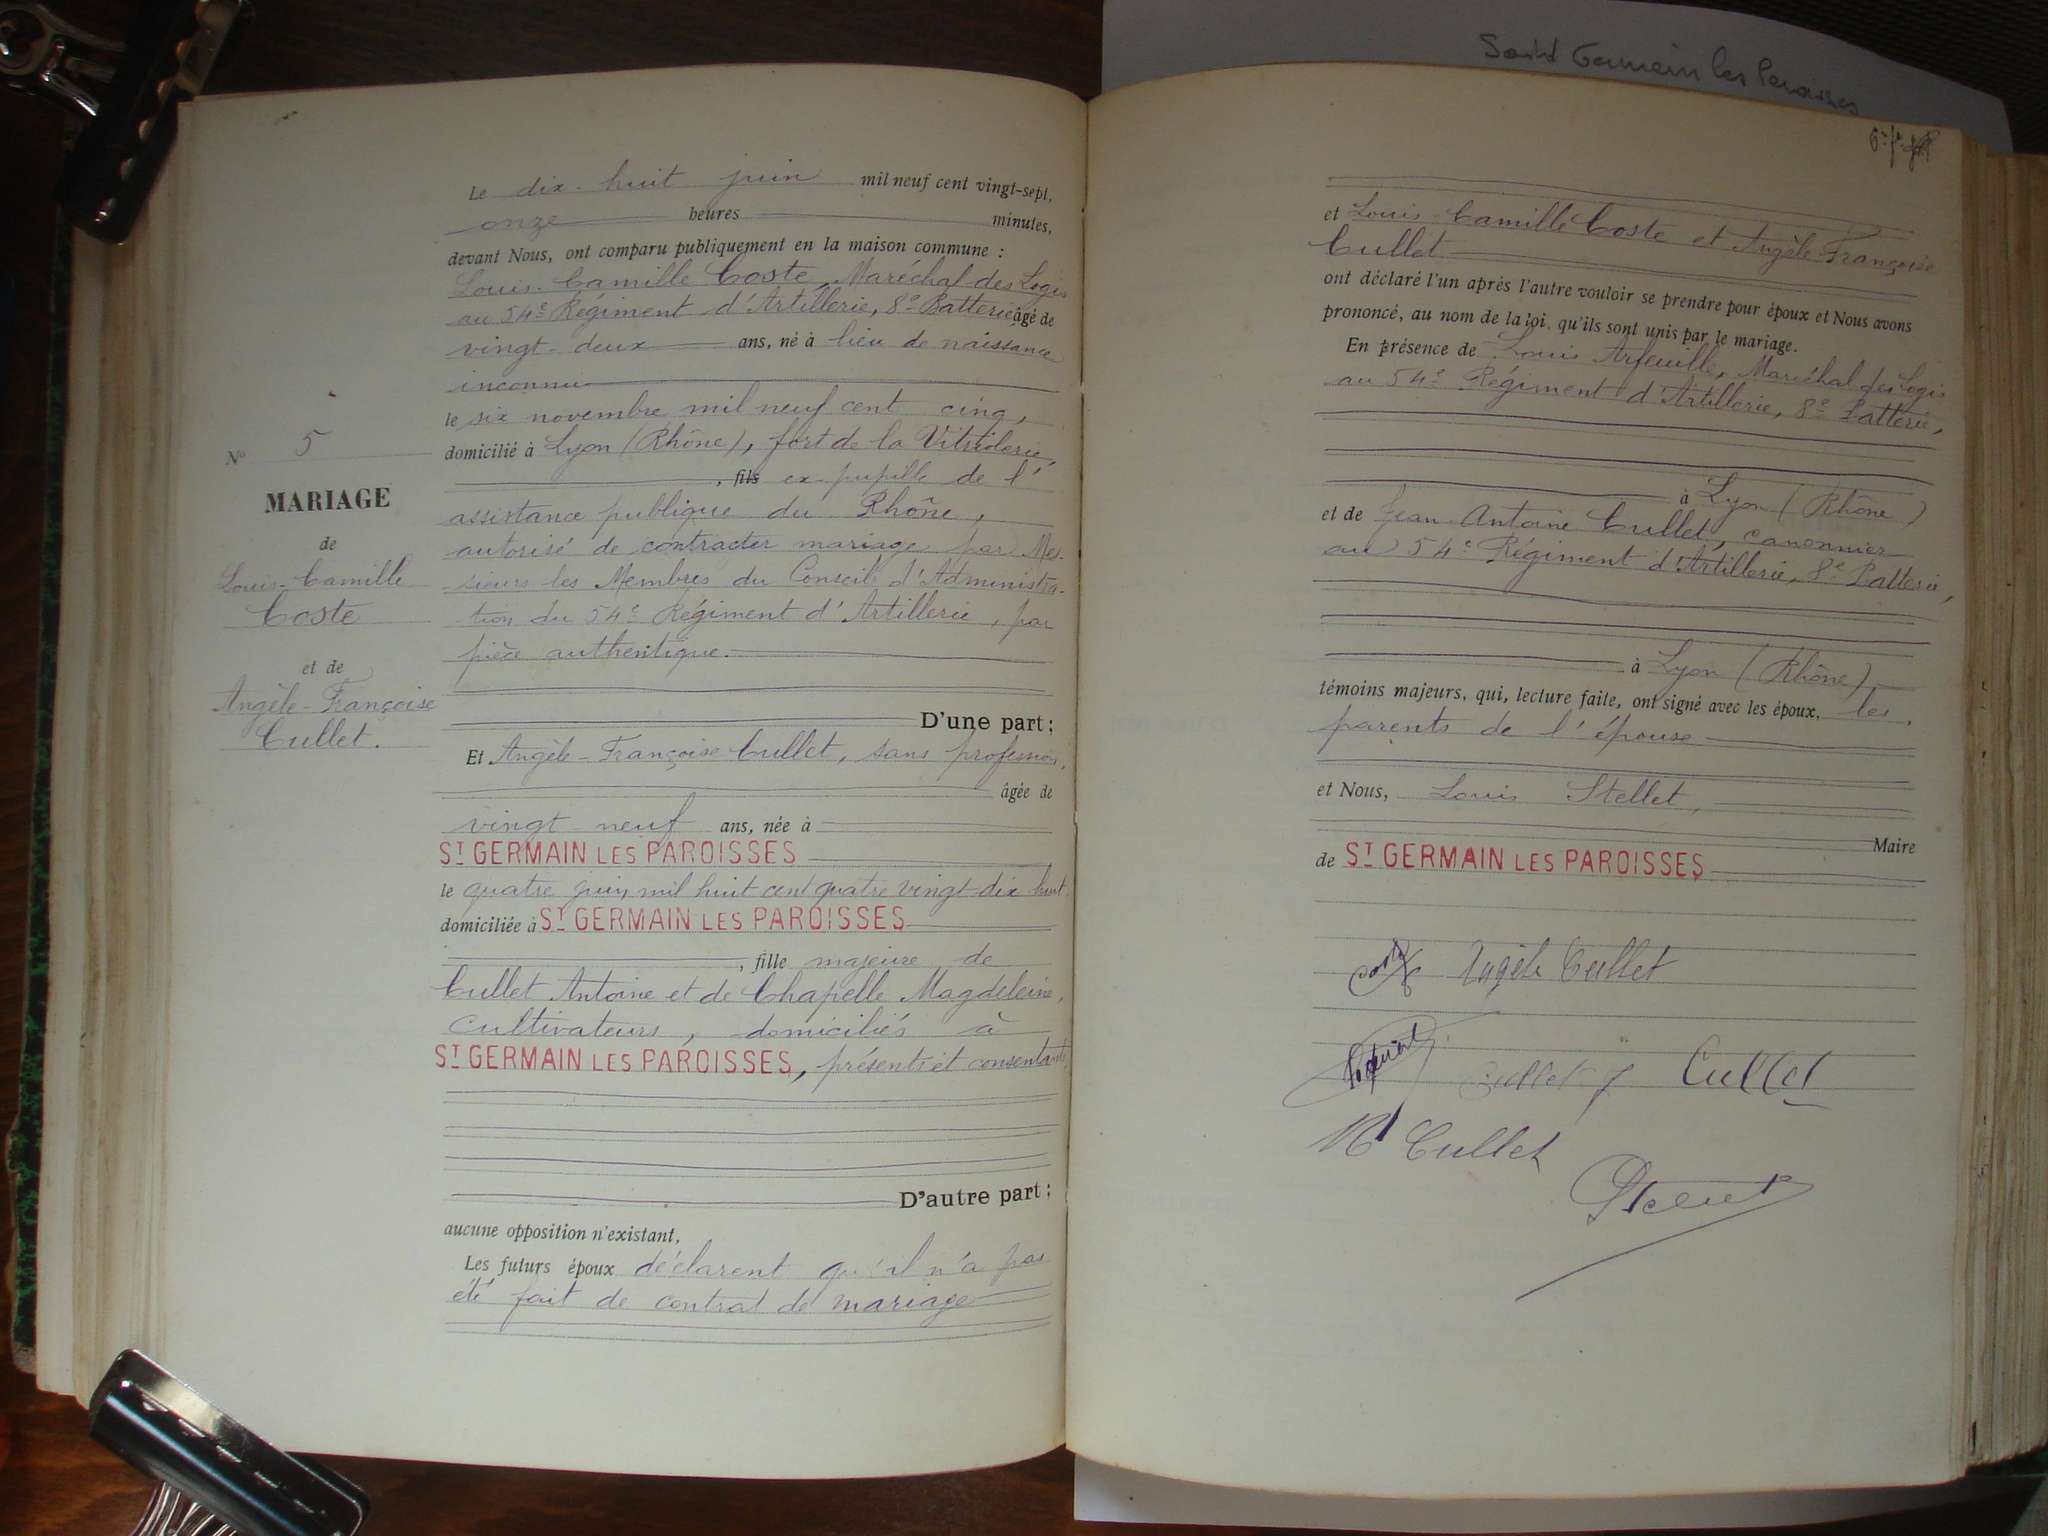 Saint Germain les Paroisses
N° 5
MARIAGE
de
Louis-Camille
Coste
et de
Angèle-Françoise
Cullet.
Le dix-huit juin mil neuf cent vingt-sept,
onze heures minutes,
devant Nous, ont comparu publiquement en la maison commune :
Louis-Camille Coste, Maréchal des Logis
au 54e Régiment d'Artillerie, 8e Batterie âgé de
vingt-deux ans, né à lieu de naissance
inconnu
le six novembre mil neuf cent cinq,
domicilié à Lyon (Rhône), fort de la Vitriolerie,
, fils ex-pupille de l'
assistance publique du Rhône,
autorisé de contracter mariage par Mes-
sieurs les Membres du Conseil d'Administra-
tion du 54e Régiment d'Artillerie, par
pièce authentique.
D'une part ;
Et Angèle-Françoise Cullet, sans profession,
âgée de
vingt-neuf ans, née à
ST GERMAIN LES PAROISSES
le quatre juin mil huit cent quatre vingt dix huit
domiciliée à ST GERMAIN LES PAROISSES
, fille majeure de
Cullet Antoine et de Chapelle Magdeleine,
cultivateurs, domiciliés à
ST GERMAIN LES PAROISSES, présents et consentants
D'autre part ;
aucune opposition n'existant,
Les futurs époux déclarent qu'il n'a pas
été fait de contrat de mariage
et Louis-Camille Coste et Angèle-Françoise
Cullet
ont déclaré l'un après l'autre vouloir se prendre pour époux et Nous avons
prononcé, au nom de la loi, qu'ils sont unis par le mariage.
En présence de Louis Arfeuille, Maréchal des Logis
au 54e Régiment d'Artillerie, 8e Batterie,
à Lyon (Rhône)
et de Jean-Antoine Cullet, canonnier
au 54e Régiment d'Artillerie, 8e Batterie,
à Lyon (Rhône),
témoins majeurs, qui, lecture faite, ont signé avec les époux, les
parents de l'épouse
et Nous, Louis Stellet,
Maire
de ST GERMAIN LES PAROISSES
Coste Angèle Cullet
Cullet J Cullet
M Cullet